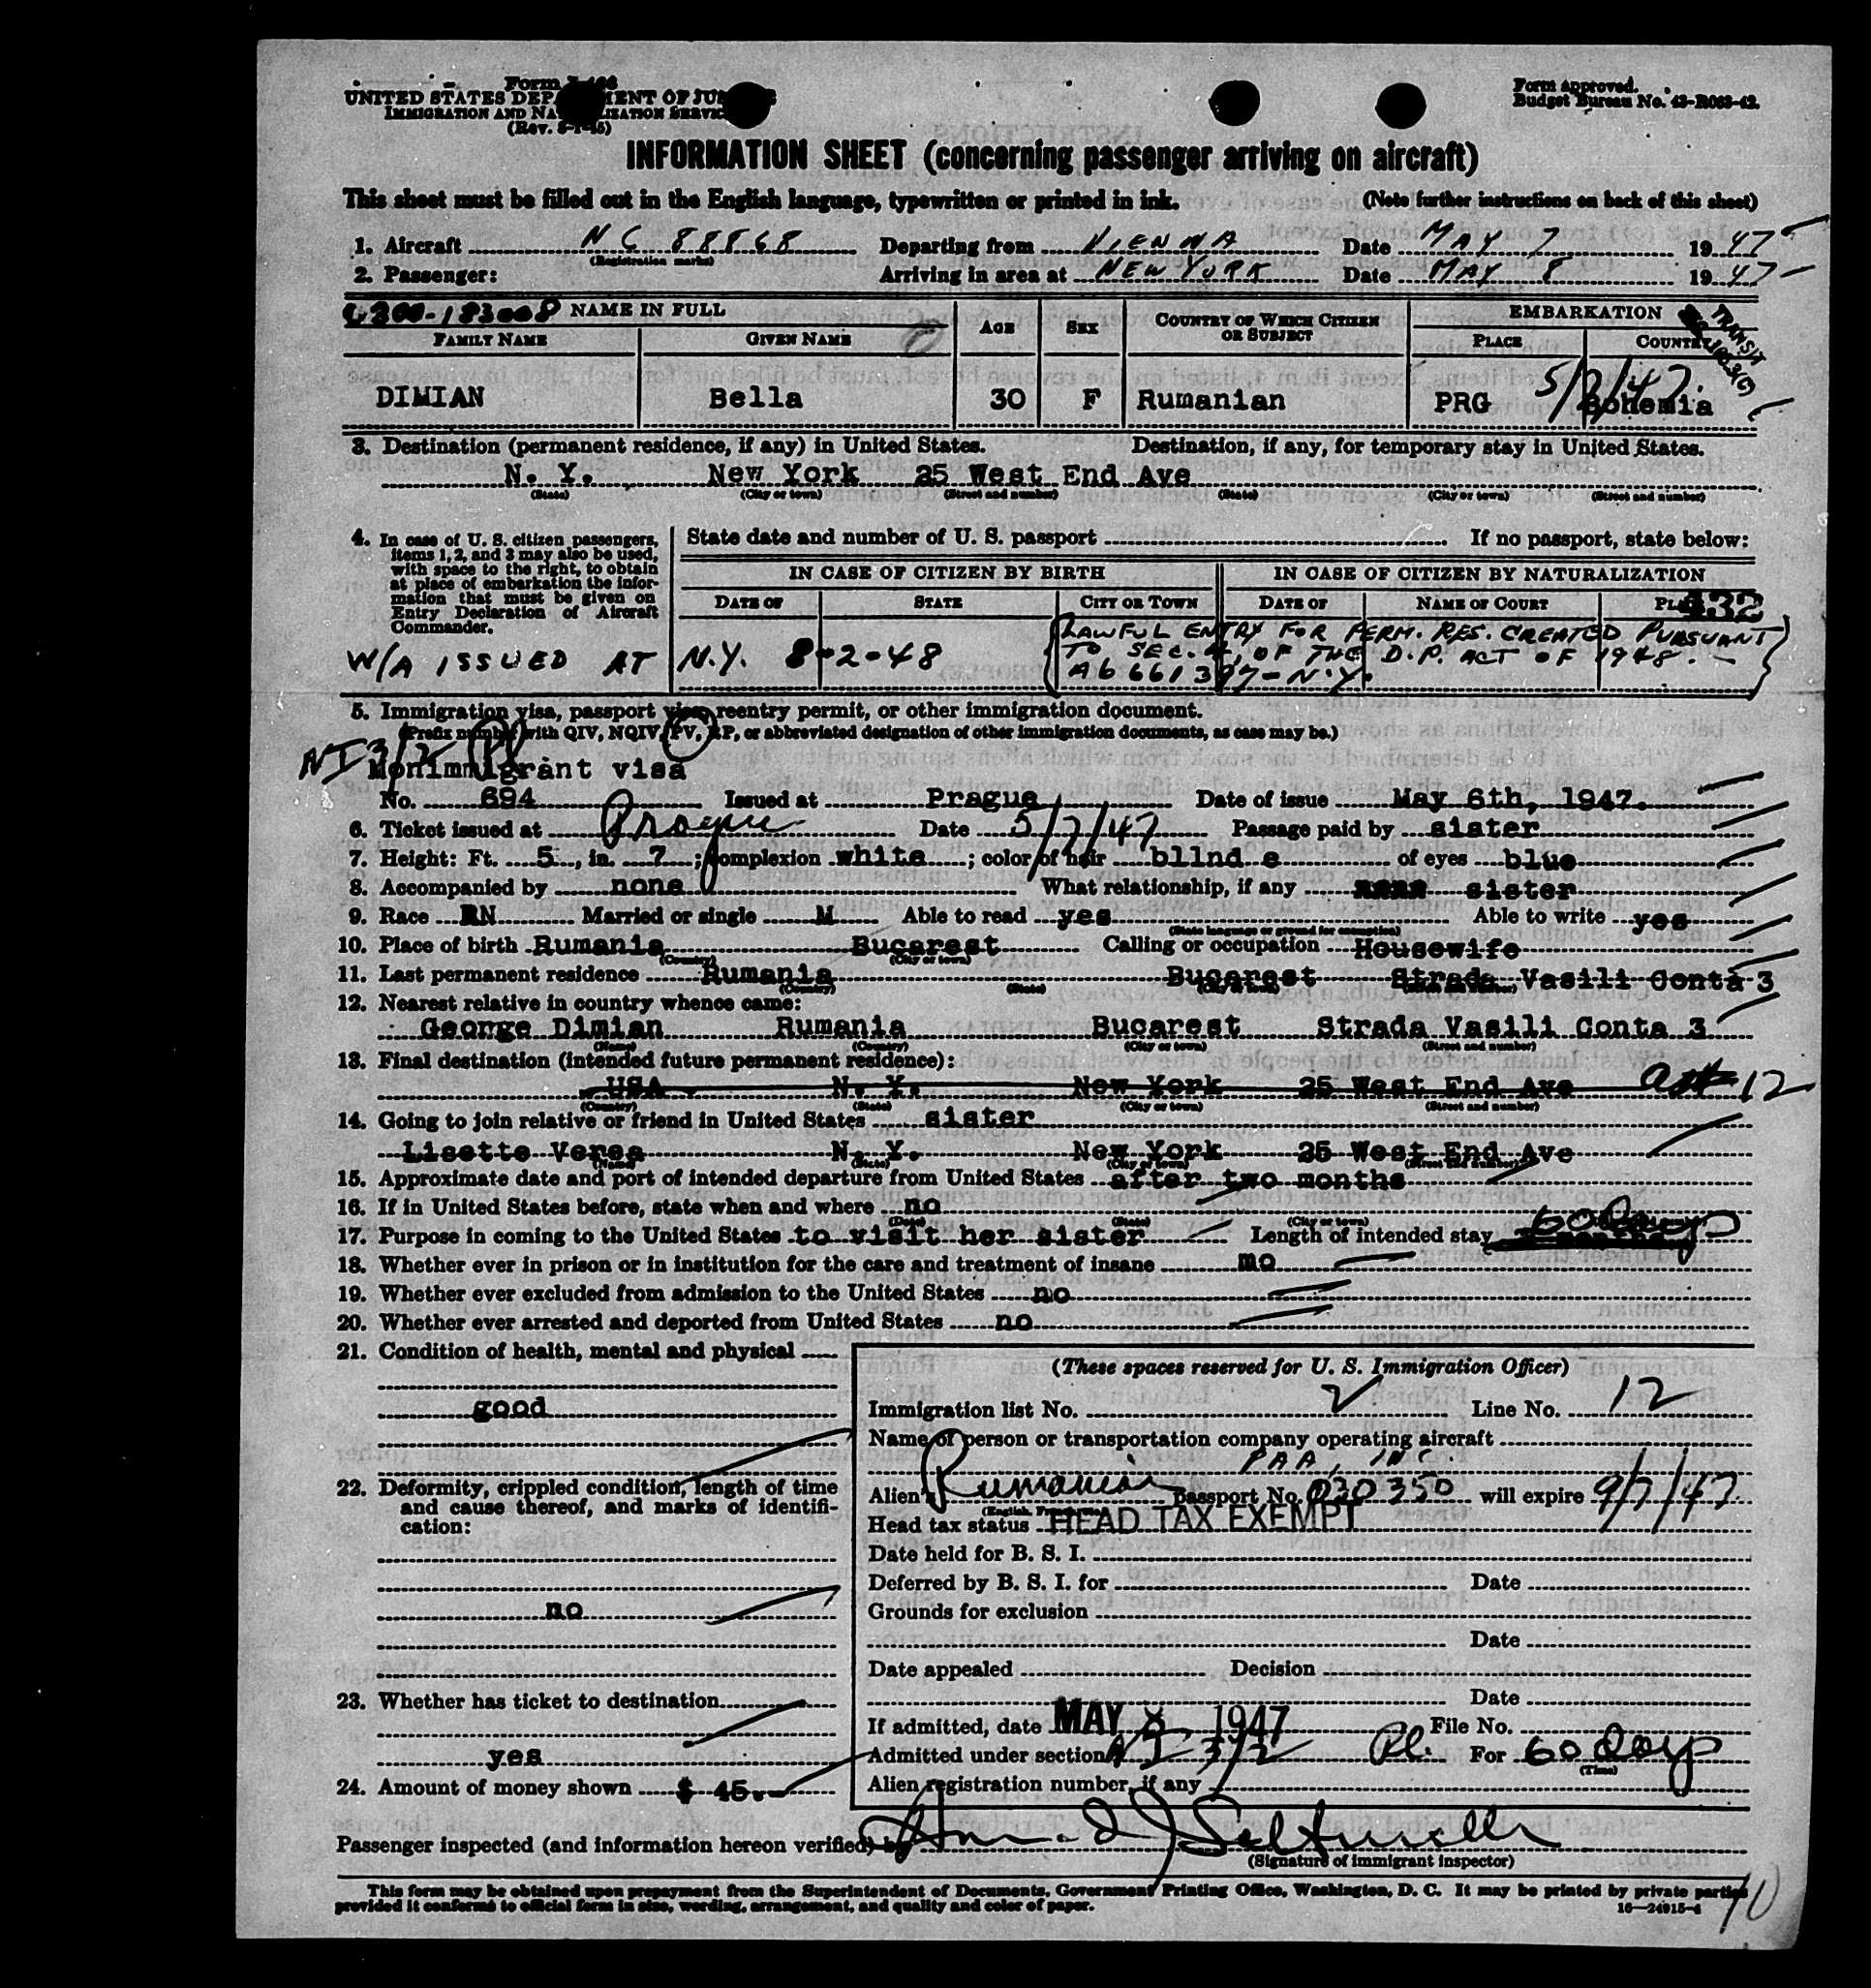 Form I-466
UNITED STATES DEPARTMENT OF JUSTICE
IMMIGRATION AND NATURALIZATION SERVICE
(Rev. 5-1-45)
Form approved.
Budget Bureau No. 43-R063-42.
INFORMATION SHEET (concerning passenger arriving on aircraft)
This sheet must be filled out in the English language, typewritten or printed in ink. (Note further instructions on back of this sheet)
1. Aircraft NC 88868 Departing from VIENNA Date MAY 7 1947
(Registration marks)
2. Passenger: Arriving in area at NEW YORK Date MAY 8 1947
NAME IN FULL AGE SEX COUNTRY OF WHICH CITIZEN OR SUBJECT EMBARKATION
TRANSIT
FAMILY NAME GIVEN NAME PLACE COUNTRY
5/7/47.
DIMIAN Bella 30 F Rumanian PRG Bohemia
3. Destination (permanent residence, if any) in United States. Destination, if any, for temporary stay in United States.
N. Y. New York 25 West End Ave
(State) (City or town) (Street and number) (State) (City or town) (Street and number)
4. In case of U. S. citizen passengers, items 1, 2, and 3 may also be used, with space to the right, to obtain at place of embarkation the information that must be given on Entry Declaration of Aircraft Commander.
State date and number of U. S. passport If no passport, state below:
IN CASE OF CITIZEN BY BIRTH IN CASE OF CITIZEN BY NATURALIZATION
DATE OF STATE CITY OR TOWN DATE OF NAME OF COURT PLACE
432
W/A ISSUED AT N.Y. 8-2-48
LAWFUL ENTRY FOR PERM. RES. CREATED PURSUANT
TO SEC. 4, OF THE D.P. ACT OF 1948.
A6661397-N.Y.
5. Immigration visa, passport visa, reentry permit, or other immigration document.
(Prefix number with QIV, NQIV, PV, RP, or abbreviated designation of other immigration documents, as case may be.)
NI 3/2 PV
Nonimmigrant visa
No. 694 Issued at Prague Date of issue May 6th, 1947.
6. Ticket issued at Prague Date 5/7/47 Passage paid by sister
7. Height: Ft. 5, in. 7; complexion white; color of hair bllnd e of eyes blue
8. Accompanied by none What relationship, if any sister
9. Race RN Married or single M Able to read yes Able to write yes
(State language or ground for exemption)
10. Place of birth Rumania Bucarest Calling or occupation Housewife
(Country) (City or town)
11. Last permanent residence Rumania Bucarest Strada Vasili Conta 3
(Country) (State) (City or town) (Street and number)
12. Nearest relative in country whence came:
George Dimian Rumania Bucarest Strada Vasili Conta 3
(Name) (Country) (City or town) (Street and number)
13. Final destination (intended future permanent residence):
USA N. Y. New York 25 West End Ave 12
(Country) (State) (City or town) (Street and number)
14. Going to join relative or friend in United States sister
Lisette Verea N. Y. New York 25 West End Ave
(Name) (State) (City or town) (Street and number)
15. Approximate date and port of intended departure from United States after two months
16. If in United States before, state when and where no
(Date) (State) (City or town)
17. Purpose in coming to the United States to visit her sister Length of intended stay 60 days
18. Whether ever in prison or in institution for the care and treatment of insane mo
19. Whether ever excluded from admission to the United States no
20. Whether ever arrested and deported from United States no
21. Condition of health, mental and physical
good
22. Deformity, crippled condition, length of time and cause thereof, and marks of identification:
no
23. Whether has ticket to destination
yes
24. Amount of money shown $ 45.-
(These spaces reserved for U. S. Immigration Officer)
Immigration list No. 2 Line No. 12
Name of person or transportation company operating aircraft
PAA, INC.
Alien's Rumanian Passport No. 030350 will expire 9/7/47
Head tax status HEAD TAX EXEMPT
Date held for B. S. I.
Deferred by B. S. I. for Date
Grounds for exclusion
Date
Date appealed Decision
Date
If admitted, date MAY 8 1947 File No.
Admitted under section NI 3/2 Pl. For 60 days
(Time)
Alien registration number, if any
Passenger inspected (and information hereon verified) by
(Signature of immigrant inspector)
This form may be obtained upon prepayment from the Superintendent of Documents, Government Printing Office, Washington, D. C. It may be printed by private parties
provided it conforms to official form in size, wording, arrangement, and quality and color of paper. 16—24915-4